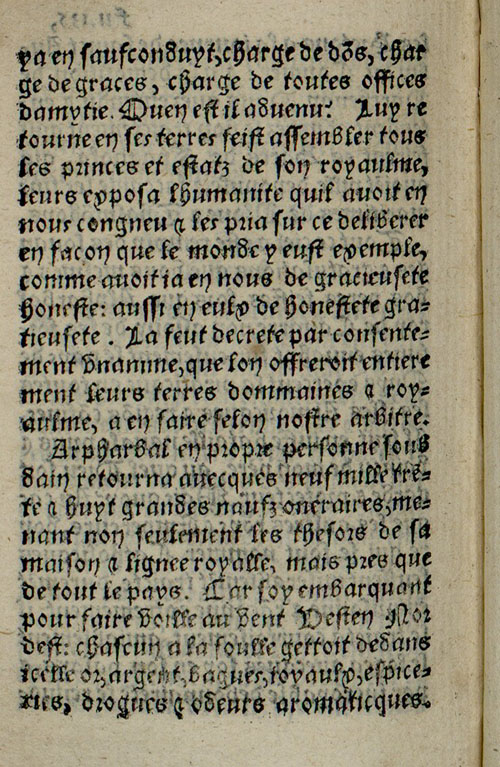 ya en saufconduyt, charge de dõs, char
ge de graces, charge de toutes offices
damytie. Quen est il aduenu? Luy re
tourne en ses terres feist assembler tous
les princes et estatz de son royaulme,
leurs exposa lhumanite quil auoit en
nous congneu & les pria sur ce deliberer
en facon que le monde y eust exemple,
comme auoit ia en nous de gracieusete
honeste: aussi en eulx de honestete gra-
tieusete. La feut decrete par consente-
ment vnanime, que lon offreroit entiere
ment leurs terres dommaines & roy-
aulme, a en faire selon nostre arbitre.
Alpharbal en propre personne soub
dain retourna auecques neuf mille trē-
te & huyt grandes naufz oneraires, me-
nant non seulement les thesors de sa
maison & lignee royalle, mais pres que
de tout le pays. Car soy embarquant
pour faire voille au vent Vesten Nor
dest: chascun a la foulle gettoit dedans
icelle or, argent, bagues, ioyaulx, espice-
ries, drogues & odeurs aromaticques.